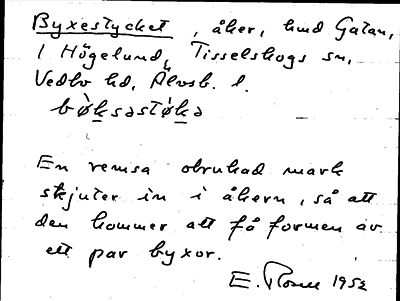 Byxestycket, åker, hmd Gatan,
1 Högelund, Tisselskogs sn,
Vedbo hd, Älvsb. l.
bøksəstøkə
En remsa obrukad mark
skjuter in i åkern, så att
den kommer att få formen av
ett par byxor.
E. 1952